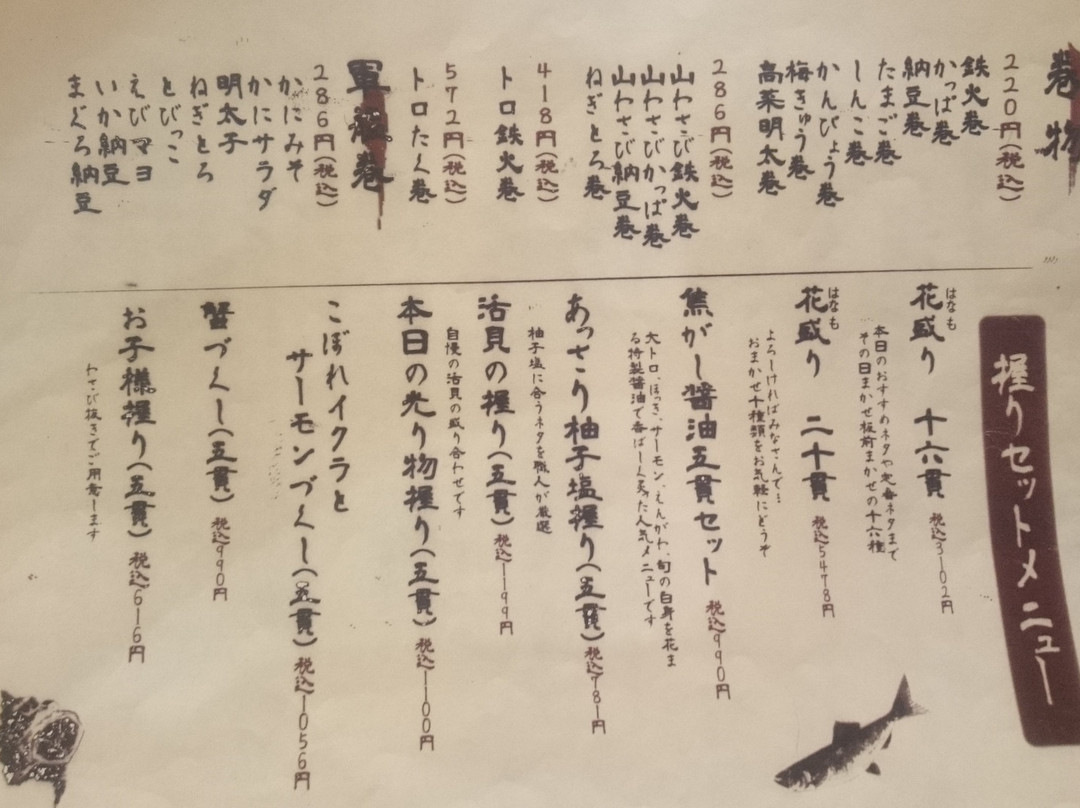 巻物
220円(税込)
鉄火巻
かっぱ巻
納豆巻
たまご巻
しんこ巻
かんぴょう巻
梅きゅう巻
高菜明太巻
286円(税込)
山わさび鉄火巻
山わさびかっぱ巻
山わさび納豆巻
ねぎとろ巻
418円(税込)
トロ鉄火巻
572円(税込)
トロたく巻
軍艦巻
286円(税込)
かにみそ
かにサラダ
明太子
ねぎとろ
とびっこ
えびマヨ
いか納豆
まぐろ納豆
握りセットメニュー
はなも
花盛り 十六貫 税込3102円
本日のおすすめネタや定番ネタまで
その日まかせ板前まかせの十六種
はなも
花盛り 二十貫 税込5478円
よろしければみなさんで…
おまかせ十種類をお気軽にどうぞ
焦がし醤油五貫セット 税込990円
大トロ、ほっき、サーモン、えんがわ、旬の白身を花ま
る特製醤油で香ばしく炙った人気メニューです
あっさり柚子塩握り(五貫) 税込781円
柚子塩に合うネタを職人が厳選
活貝の握り(五貫) 税込1199円
自慢の活貝の盛り合わせです
本日の光り物握り(五貫) 税込1100円
こぼれイクラと
サーモンづくし(五貫) 税込1056円
蟹づくし(五貫) 税込990円
お子様握り(五貫) 税込616円
わさび抜きでご用意します